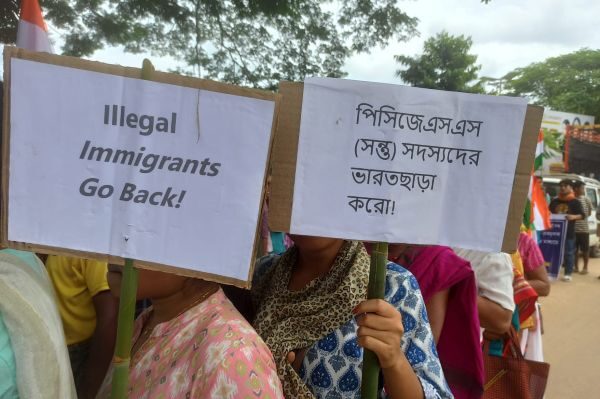 Illegal
Immigrants
Go Back!
পিসিজেএসএস
(সন্তু) সদস্যদের
ভারতছাড়া
করো!